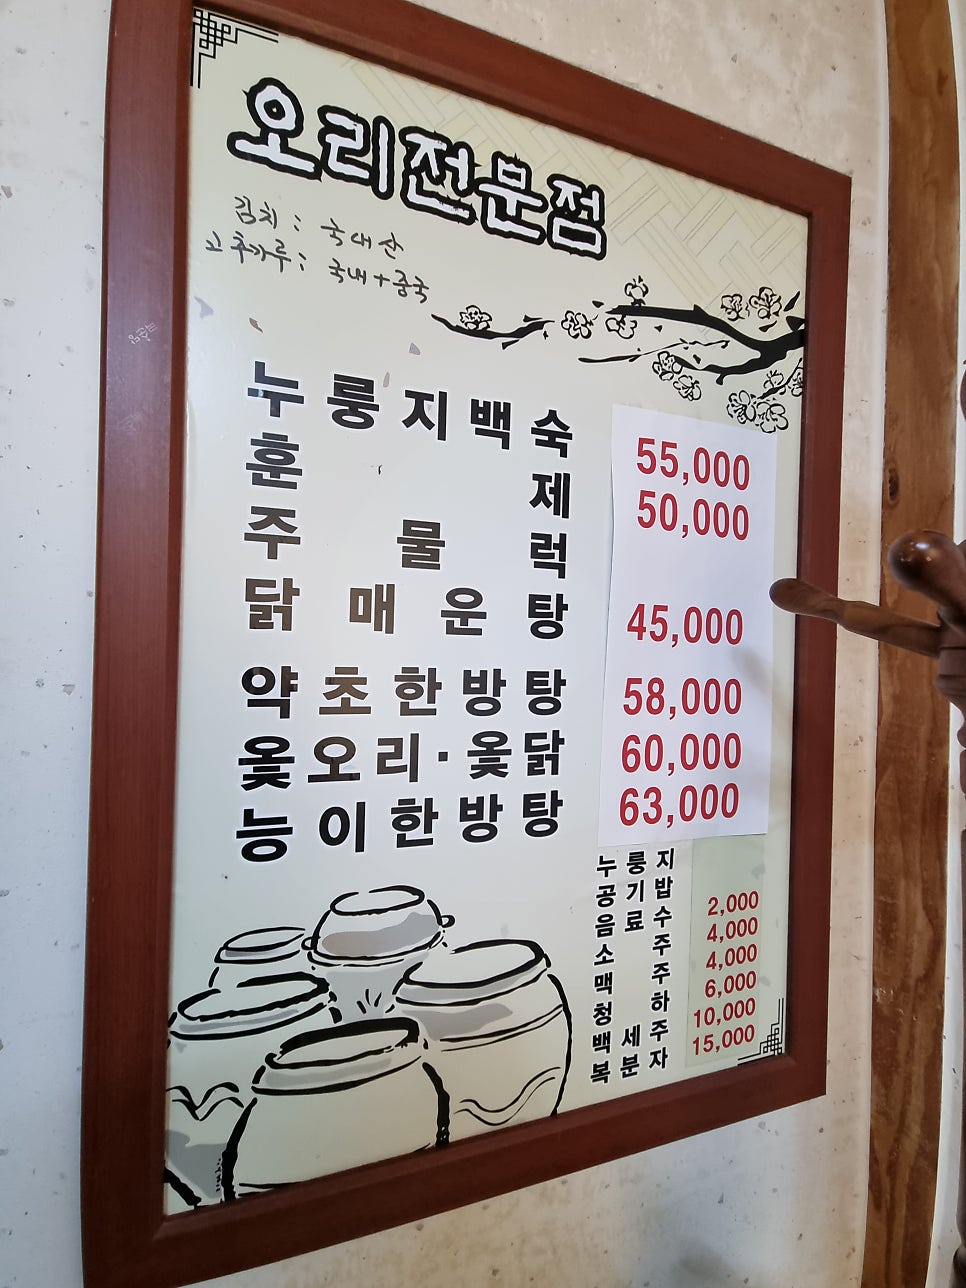 오리전문점
김치 : 국내산
고춧가루 : 국내+중국
누룽지백숙 55,000
훈제 50,000
주물럭
닭매운탕 45,000
약초한방탕 58,000
옻오리·옻닭 60,000
능이한방탕 63,000
누룽지
공기밥
음료수 2,000
소주 4,000
맥주 4,000
청하 6,000
백세주 10,000
복분자 15,000